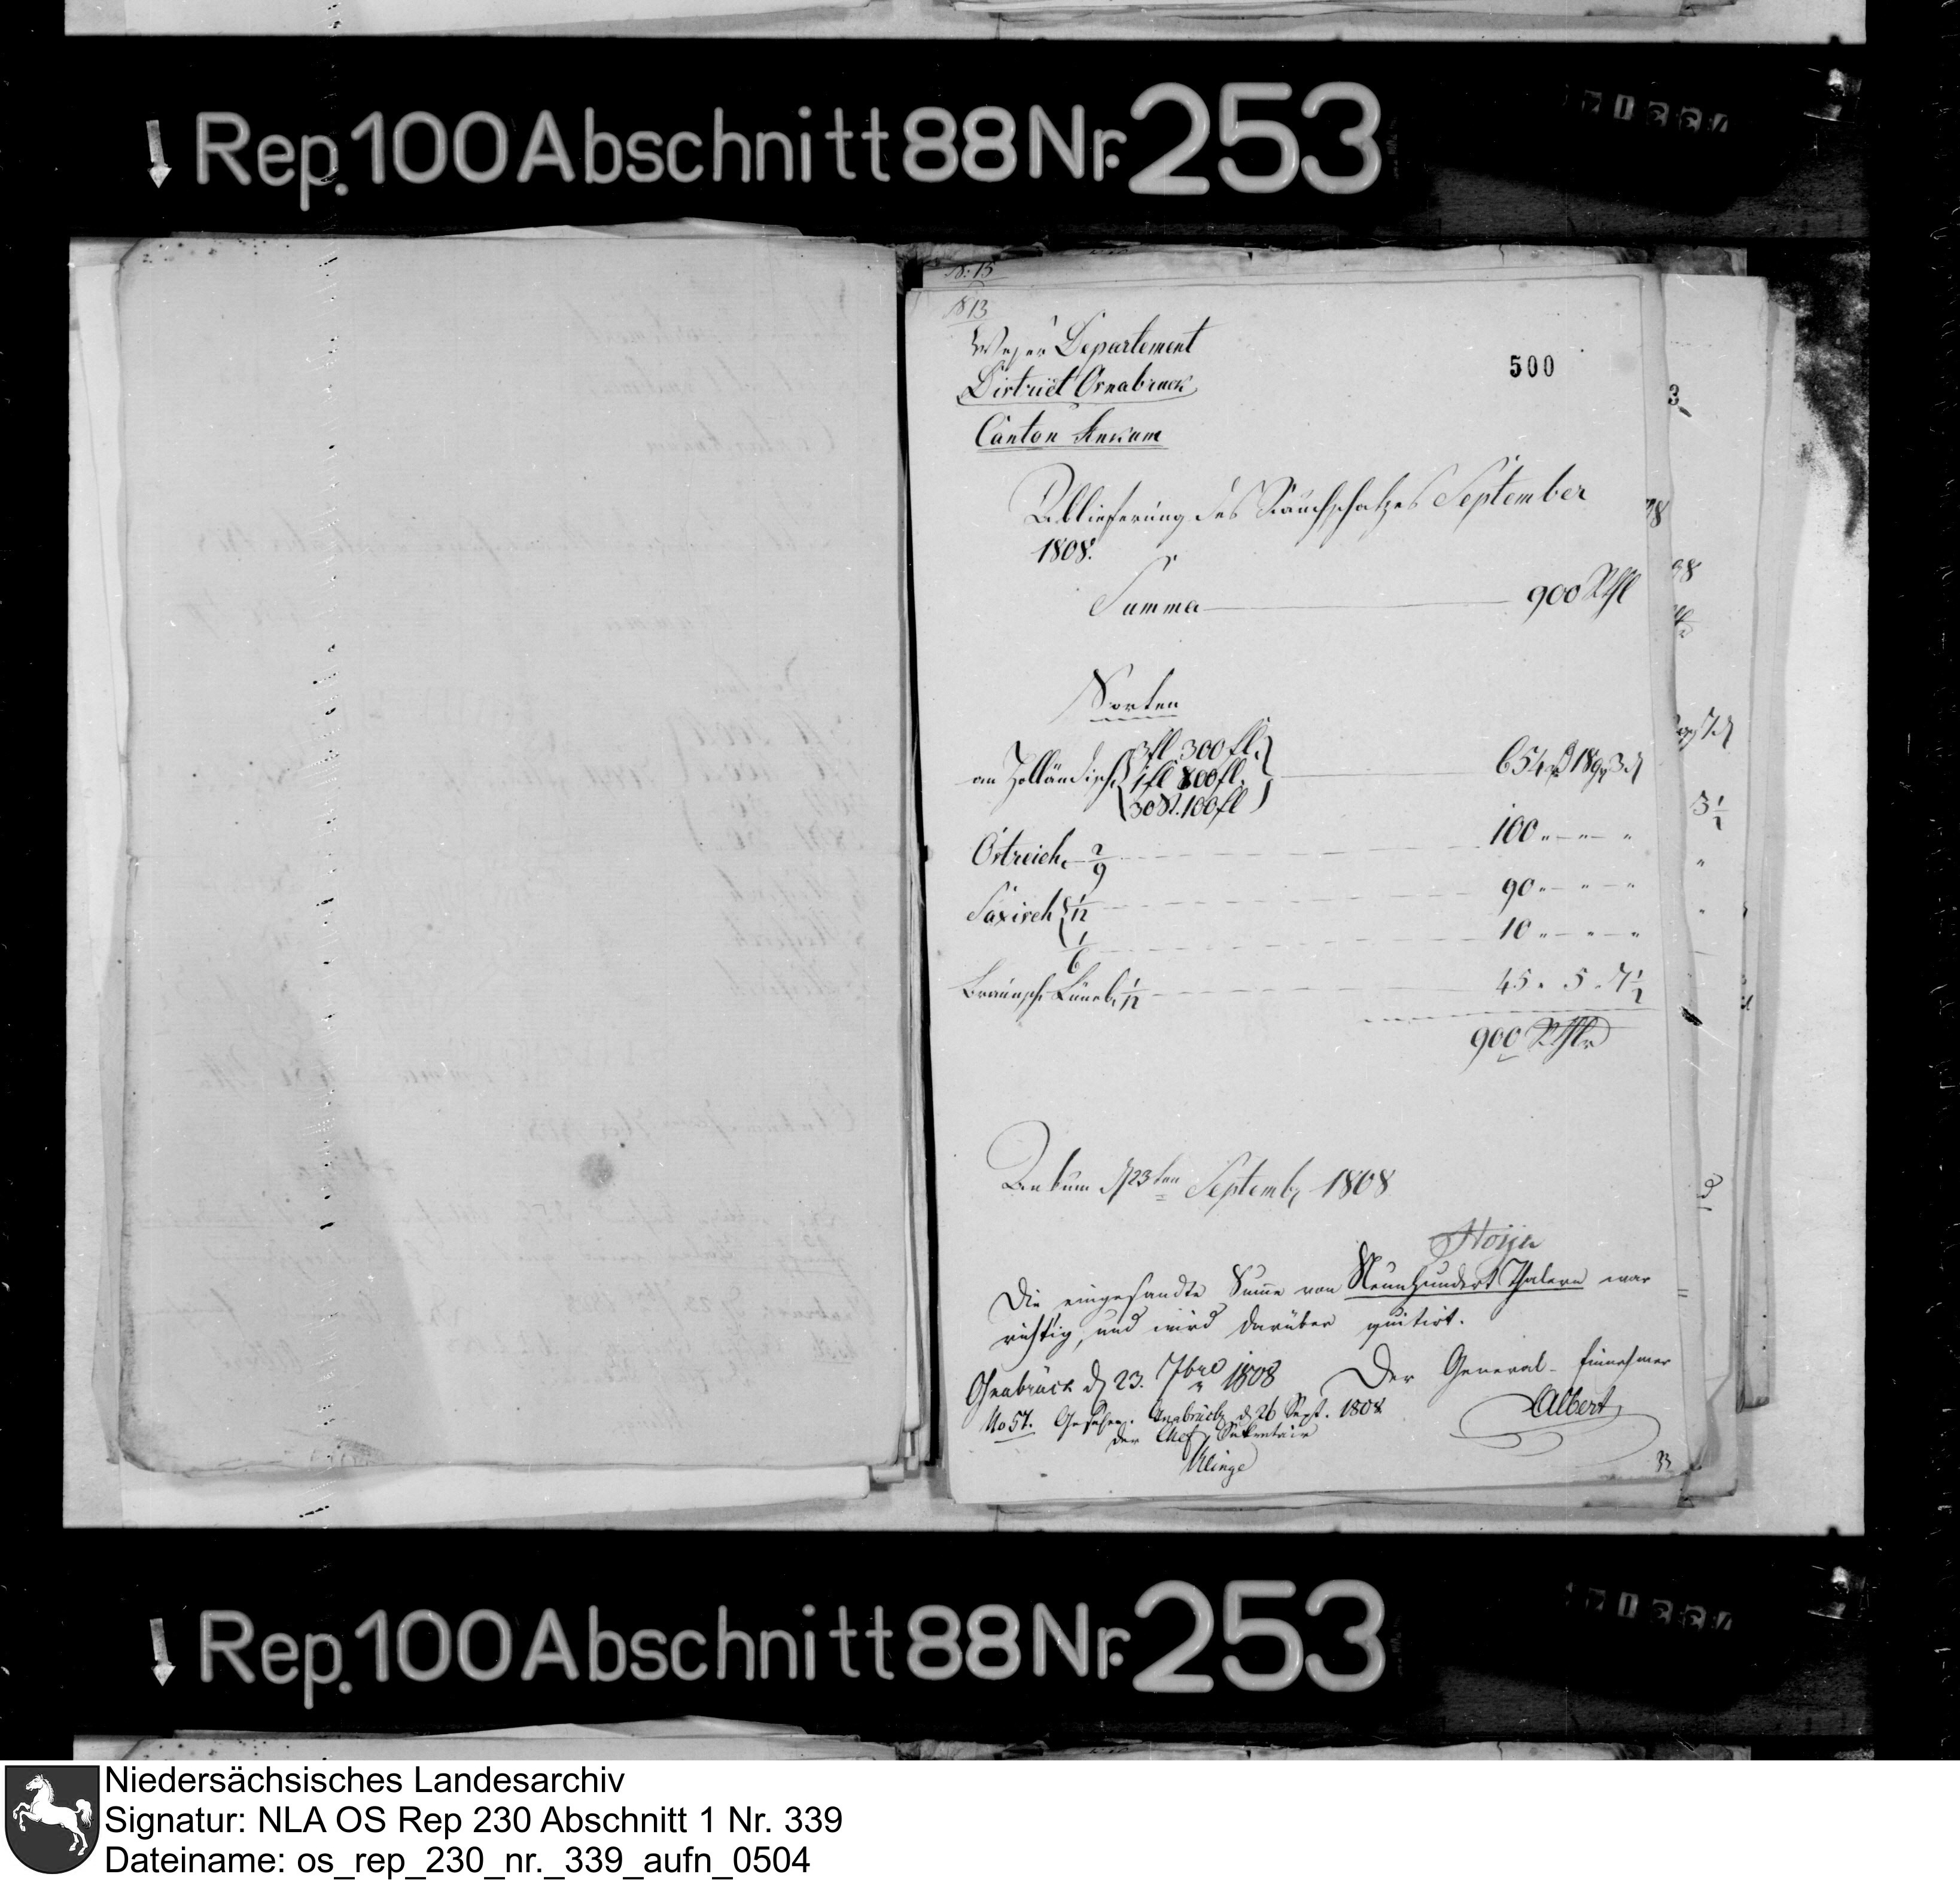 Rep. 100 Abschnitt 88 Nr. 253
18:15
1813
Weser Departement
500
District Osnabruck
Canton Ankum
Ablieferung des Rauchschatzes September
1808.
Summa 900 Rthl
Sorten
an Holländische 3 fl 300 fl.
1 fl 800 fl. 654 rt 18 gr 3 d
30 St. 100 fl
Östreich. 2/9 100 " - " - "
Saxisch 1/12 90 " - " - "
1/6 10 " - " - "
Braunsch. Lüneb. 1/12 45 . 5 . 7 1/2
900 Rthlr
Ankum d 23ten Septemb. 1808
Die eingesandte Summe von Neunhundert Thalern war
richtig, und wird darüber quitirt.
Osnabrück d 23. 7bre 1808 Der General-Einnehmer
Albert
No 57. Gesehen. Osnabrück d 26 Sept. 1808
der Chef Sekretair
Klinge
33
Rep. 100 Abschnitt 88 Nr. 253
Niedersächsisches Landesarchiv
Signatur: NLA OS Rep 230 Abschnitt 1 Nr. 339
Dateiname: os_rep_230_nr._339_aufn_0504